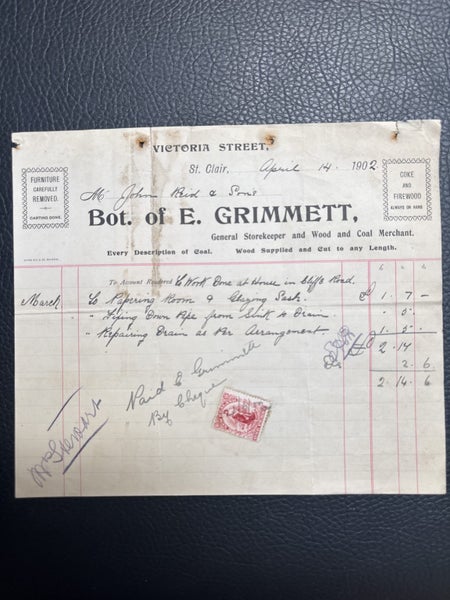 VICTORIA STREET,
St. Clair, April 14. 1902
FURNITURE
CAREFULLY
REMOVED.
CARTING DONE.
COKE
AND
FIREWOOD
ALWAYS ON HAND
Mr John Reid & Sons
Bot. of E. GRIMMETT,
General Storekeeper and Wood and Coal Merchant.
Every Description of Coal. Wood Supplied and Cut to any Length.
To Account Rendered To Work Done at House in Cliffs Road.
March To Papering Room & Glazing Sash £ 1 . 7 . -
" Fixing Down Pipe from Sink to Drain . 5 .
" Repairing Drain as Per Arrangement 1 . 5 .
£ 2 . 17
2 . 6
2 . 14 . 6
Paid E Grimmett
By Cheque
Mr Stewart